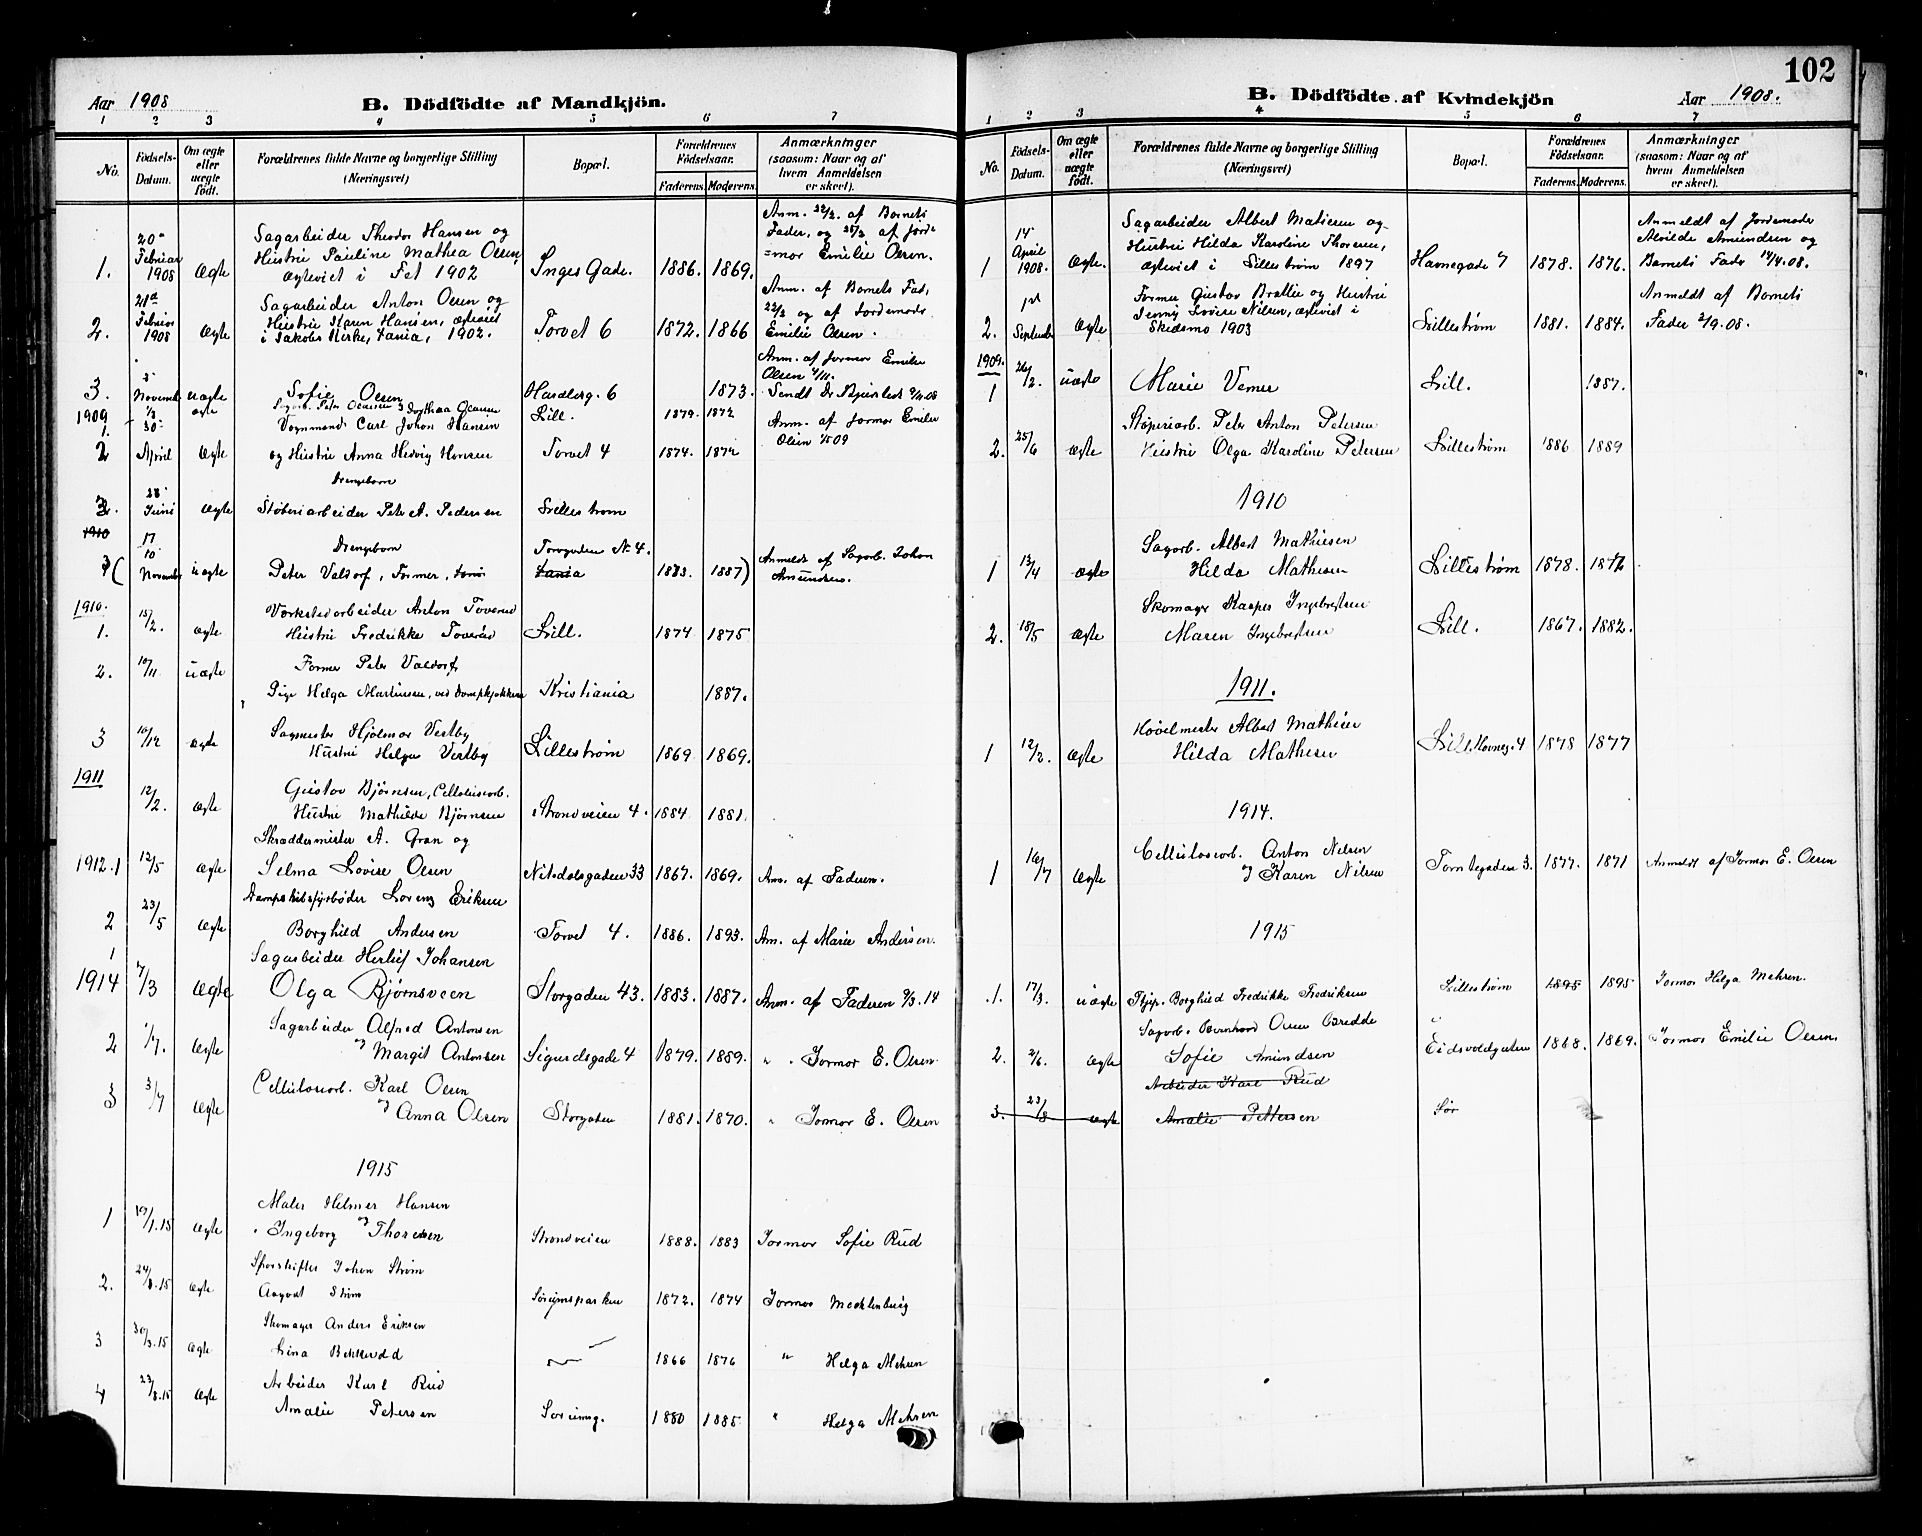 102
Aar 1908
B. Dödfödte af Mandkjön.
1 2 3 4 5 6 7
No.
Födsels-Datum.
Om ægte eller uægte födt.
Forældrenes fulde Navne og borgerlige Stilling (Næringsvei)
Bopæl.
Forældrenes Födselsaar.
Faderens. Moderens.
Anmærkninger (saasom: Naar og af hvem Anmeldelsen er skeet).
Sagarbeider Theodor Hansen og
Hustru Pauline Mathea Olsen,
1. 20de Februar 1908 Ægte ægteviet i Fet 1902 Inges Gade. 1886. 1869.
Anm. 22/2. af Barnets
Fader, og 25/2 af Jorde-
=mor Emilie Olsen.
Sagarbeider Anton Olsen og
Hustru Karen Hansen, ægteviet
2. 21de Februar 1908 Ægte i Jakobs Kirke, X.ania, 1902. Torvet 6 1872. 1866
Anm. af Barnets Fad,
22/2 og af Jordemoder
Emilie Olsen.
3. Novemb uægte Sofie Olsen Hardberg. 6 1873.
Anm. af Jormor Emilie
Olsen 4/11.
1909
1. 1/3 ægte Sagarb. Peter Olausen & Dorthea Olausen Lill. 1879. 1872
Vognmand Carl Johan Hansen
2 30 April Ægte og Hustru Anna Hedvig Hansen Torvet 4 1874. 1872
Anm. af Jormor Emilie
Olsen 1/5 09
Drengebarn
3. 28 Juni Ægte Støberiarbeider Peter A. Pedersen Lillestrøm
1910
Drengebarn Torvgaden No 4.
17/10 November uægte Peter Valdorf, Former, 1883. 1887)
Anmeldt af Sagarb. Johan
Amundsen.
1910.
Værkstedarbeider Anton Toverud
1. 15/2. ægte Hustru Fredrikke Toverud Lill. 1874 1875
2. 10/11 uægte Former Peter Valdorf
Pige Helga Martinsen, ved Dampkjøkkenet Kristiania 1887.
Sagmester Hjalmar Vestby
3 10/12 ægte Hustru Helga Vestby Lillestrøm 1869 1869.
1911
Gustav Bjørnsen, Cellulosearb.
12/2. ægte Hustru Mathilde Bjørnsen Strandveien 4. 1884 1881.
Skræddermester A. Gran og
1912. 1 12/5 ægte Selma Lovise Olsen Nitsdalsgaden 33 1867. 1869. Anm. af Faderen.
Dampskibsfyrbøder Lorenz Eriksen
2 23/5 Ægte Borghild Andersen Torvet 4. 1886. 1893. Am. af Marie Andersen.
Sagarbeider Herluf Johansen
1
1914 7/3 Ægte Olga Bjørnsveen Storgaden 43. 1883. 1887. Anm. af Faderen 9/3. 14
Sagarbeider Alfred Antonsen
2 1/7. Ægte og Margit Antonsen Sigurdsgade 4 1879. 1889. " " Jormor E. Olsen.
Cellulosearb. Karl Olsen
3 3/7 Ægte og Anna Olsen Storgaden 1881. 1870. " Jormor E. Olsen
1915
Maler Hilmer Hansen
1 19/1.15 Ægte Ingeborg og Thoresen Strandveien 1888. 1883 Jormor Sofie Rud
Sporskifter Johan Strøm
2. 24/8.15 Ægte Aagodt Strøm Sørumsparken 1872. 1874 Jormor Mecklenburg
Skomager Anders Eriksen
3 30/3.15 Ægte Lina 1866 1876 " Helga Mehren
Arbeider Karl Rud
4 23/8.15 Ægte Amalie Petersen Sørumsg. 1880 1885 " Helga Mehren
B. Dödfödte af Kvindekjön
Aar 1908.
1 2 3 4 5 6 7
No.
Födsels-Datum.
Om ægte eller uægte födt.
Forældrenes fulde Navne og borgerlige Stilling (Næringsvei)
Bopæl.
Forældrenes Födselsaar.
Faderens. Moderens.
Anmærkninger (saasom: Naar og af hvem Anmeldelsen er skeet).
Sagarbeider Albert Matisen og
Hustru Hilda Karoline Thorsen,
1 14 April 1908. Ægte. ægteviet i Lillestrøm 1897 Havnegade 7 1878. 1876.
Anmeldt af Jordemoder
Alvilde Amundsen og
Barnets Fader 14/4.08.
Former Gustav Bratlie og Hustru
Jenny Lovise Nilsen, ægteviet i
2. 1st September Ægte Skedsmo 1903 Lillestrøm 1881. 1884.
Anmeldt af Barnets
Fader 2/9.08.
1909.
1 26/2. uægte Marie Verner Lill. 1887.
Støperiarb. Peter Anton Petersen
2. 25/6 ægte Hustru Olga Karoline Petersen Lillestrøm 1886 1889
1910
Sagarb. Albert Mathiesen
1 13/4 ægte Hilda Mathesen Lillestrøm 1878. 1876.
Skomager Kasper Ingebretsen
2. 18/5 ægte Maren Ingebretsen Lill. 1867. 1882.
1911.
Høvelmester Albert Mathisen
1 12/2. Ægte Hilda Mathisen Lill. Havneg. 4 1878 1877
1914.
Cellulosearb. Anton Nilsen
1 16/7 Ægte og Karen Nilsen Torvlegaden 3. 1877. 1871 Anmeldt af Jormor E. Olsen
1915
1. 17/3. uægte Tjp. Borghild Fredrikke Fredriksen Lillestrøm 1895 1895 Jormor Helga Mehren.
Sagarb. Bernhard Olsen Bredde
2. 2/6. ægte Sofie Amundsen Eidsvoldgaten 1868. 1869. Jormor Emilie Olsen
Arbeider Karl Rud
3. 23/8 ægte Amalie Pettersen Sør